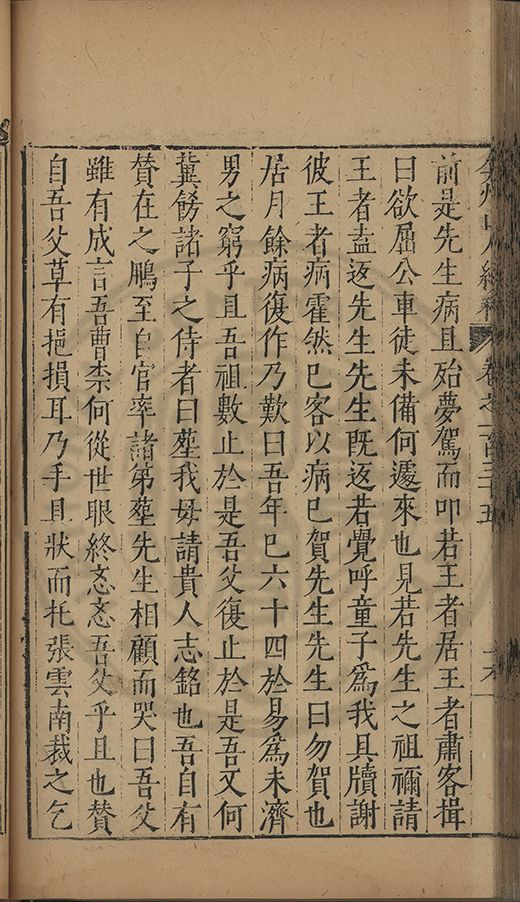 弇州山人續稿 卷之一百三十五
前是先生病且殆夢駕而叩若王者居王者肅客揖
曰欲屈公車徒未備何遽來也見若先生之祖禰請
王者盍返先生先生既返若覺呼童子爲我具牘謝
彼王者病霍然已客以病已賀先生先生曰勿賀也
居月餘病復作乃歎曰吾年已六十四於易爲未濟
男之窮乎且吾祖數止於是吾父復止於是吾又何
冀餙諸子之侍者曰塟我毋請貴人志銘也吾自有
賛在之鵬至自官率諸第塟先生相顧而哭曰吾父
雖有成言吾曹柰何從世眼終忞忞吾父乎且也賛
自吾父草有挹損耳乃手且狀而托張雲南裁之乞